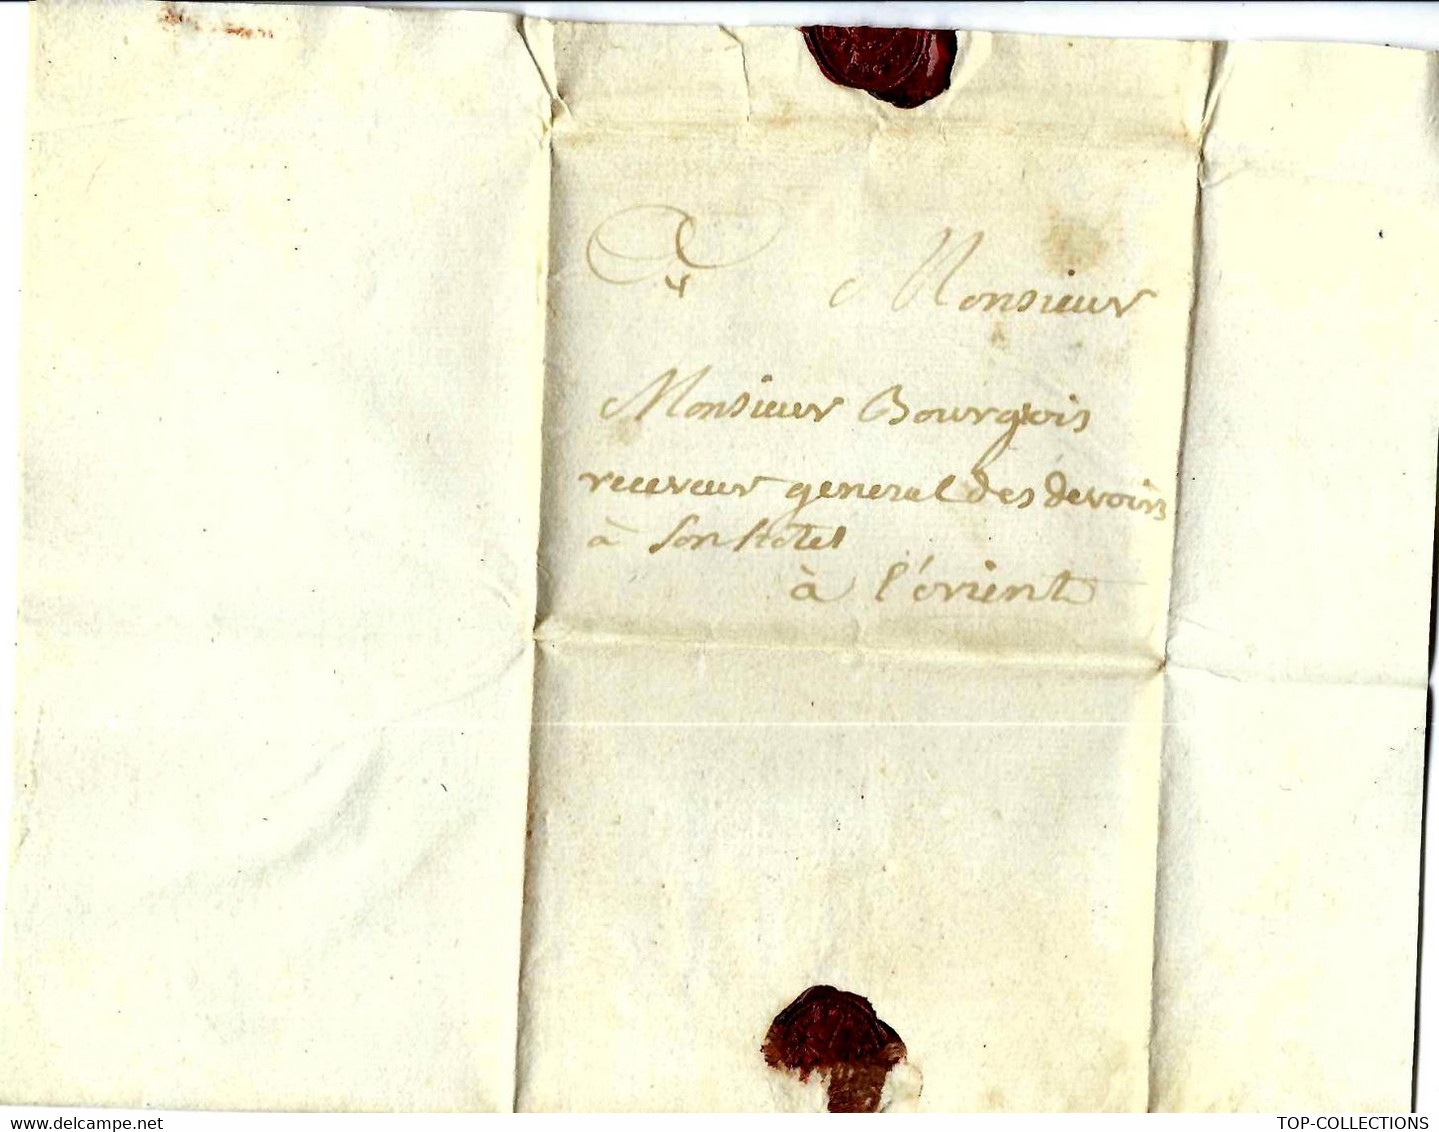 Monsieur
Monsieur Bourgois
receveur general des devoirs
à son hotel
à l'orient
TOP-COLLECTIONS
www.delcampe.net